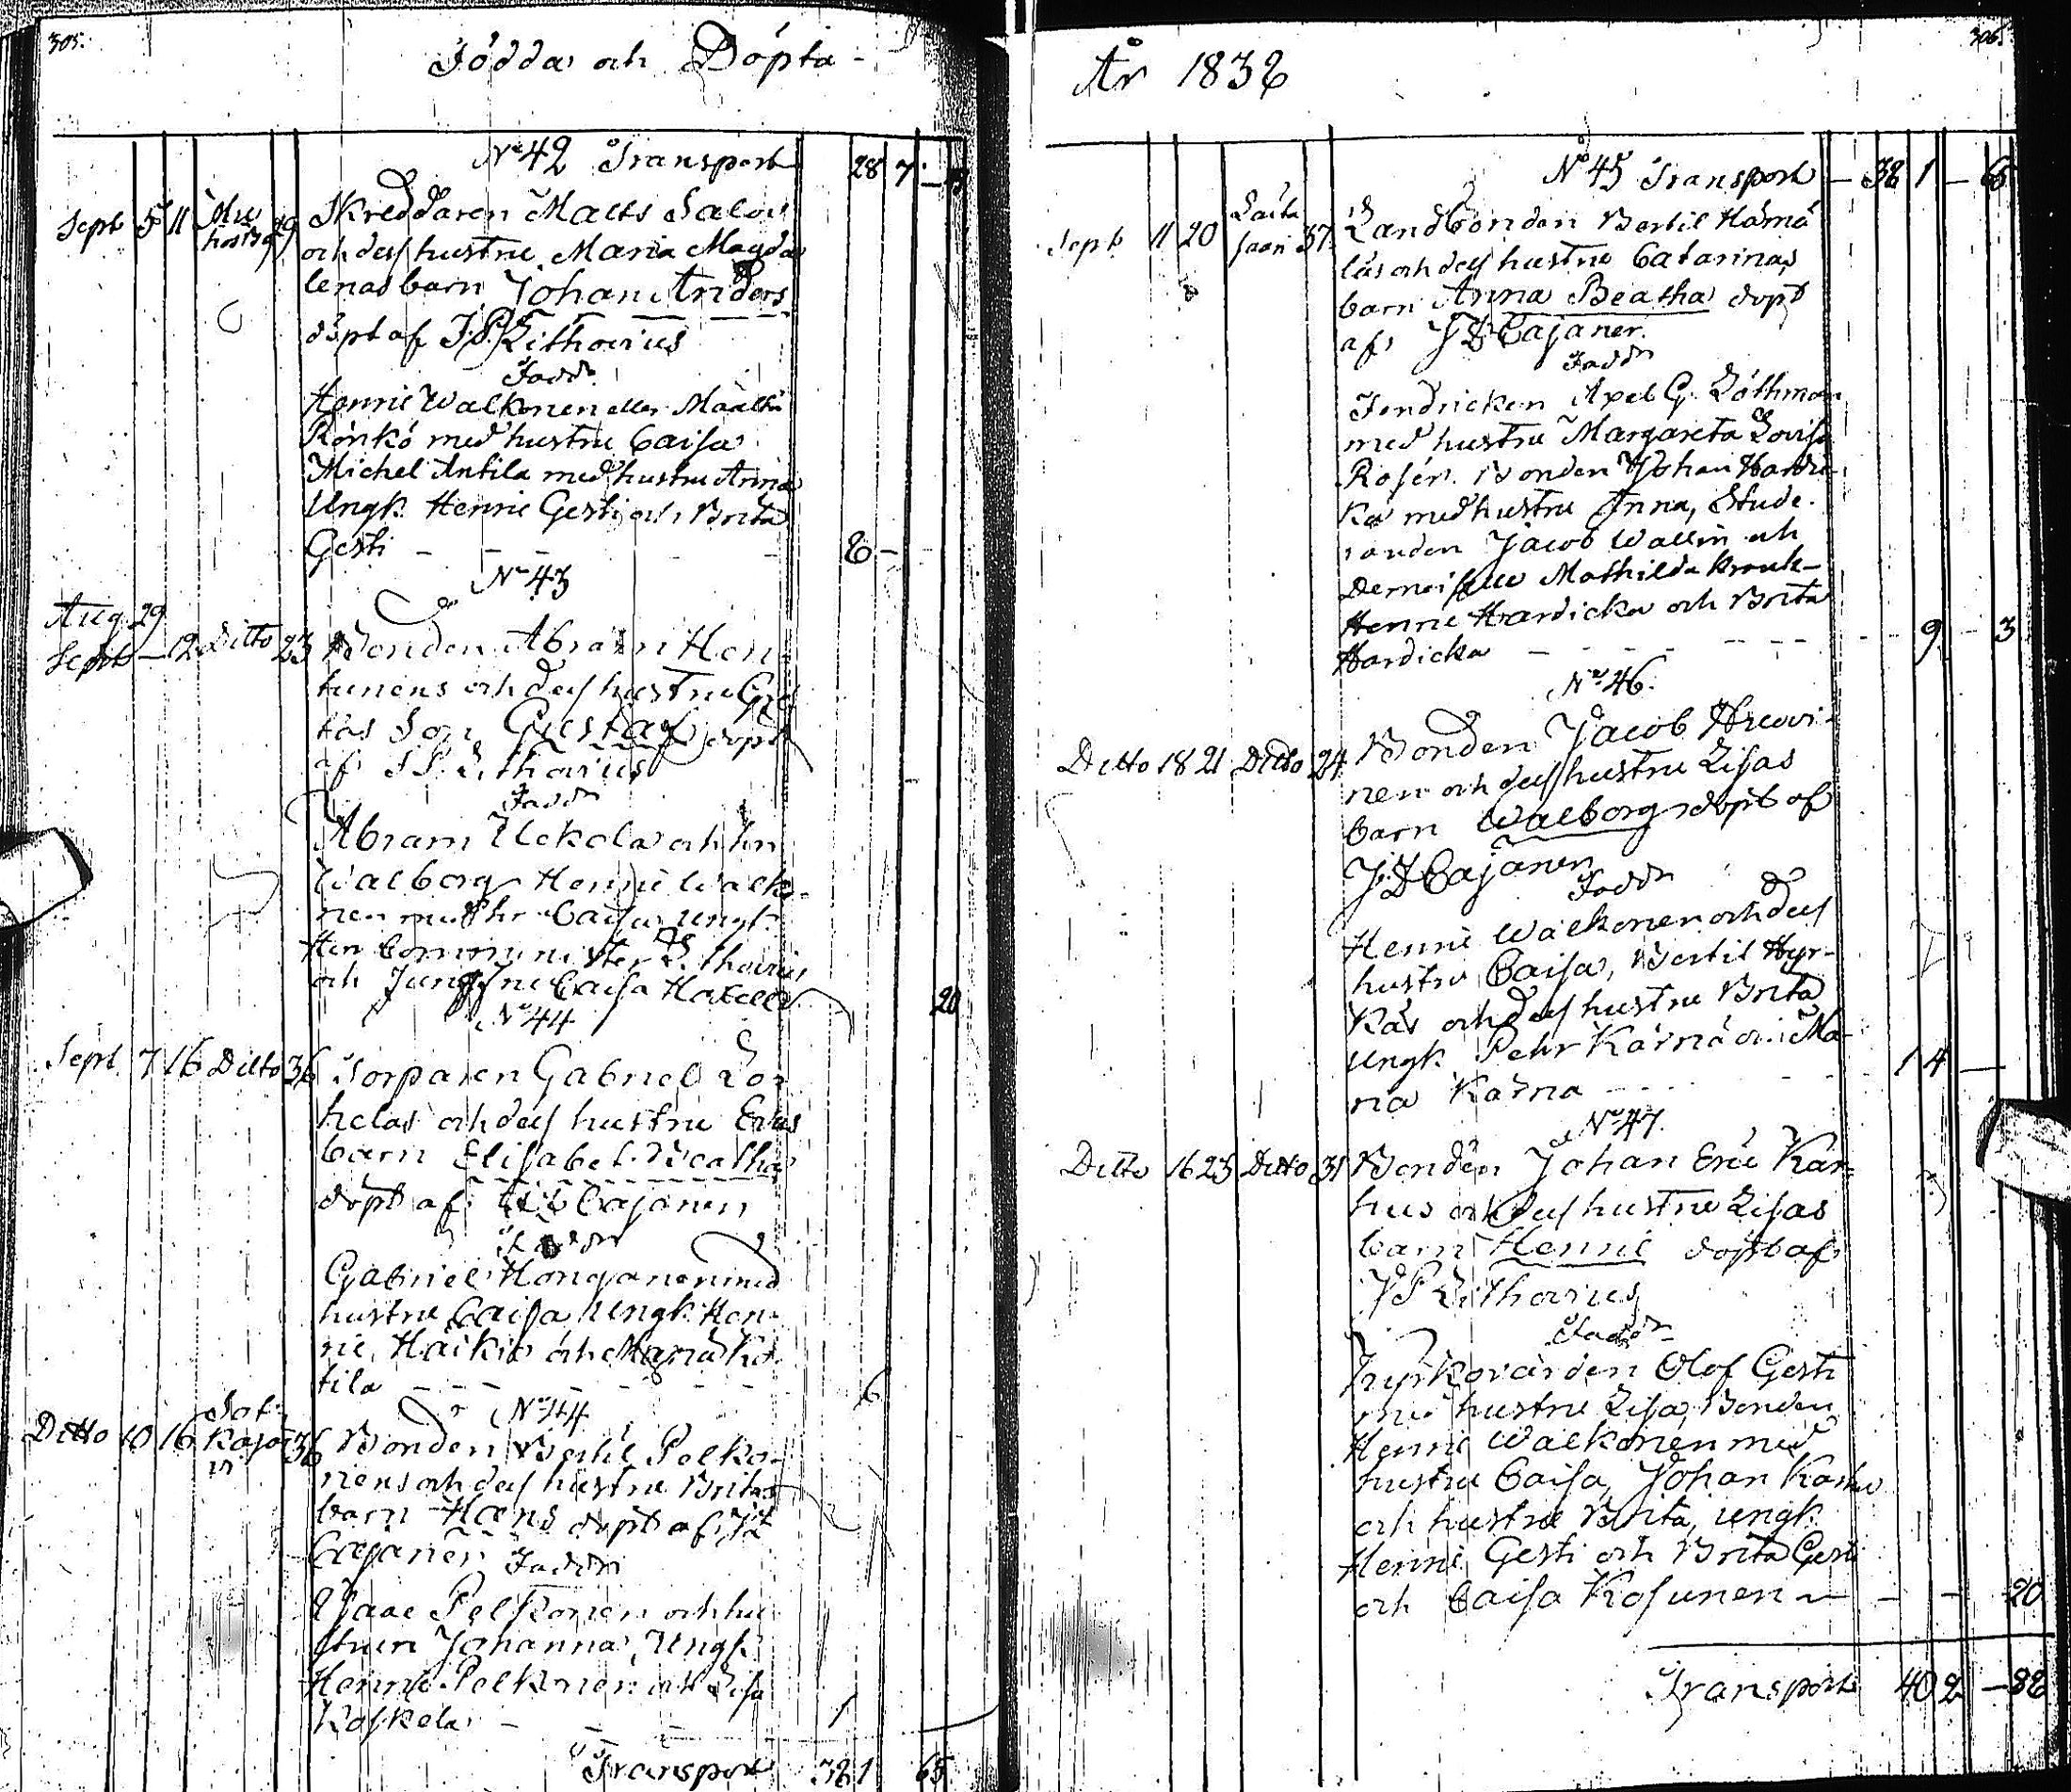 305.
Födda och Döpta
No 42 Transport 28 7
Sept 5 11 29 Skreddaren Matts Salos
och dess hustru Maria Magda
lenas barn Johan Anders
döpt af J.P. Lithovius
Fadd.
Henric Walkonen eller Määttä
Rönkö med hustru Caisa
Michel Antila med hustru Anna
Ungk. Henric Gesti och Brita
Gesti 2
No 43
Aug. 29
Sept 12 Ditto 23 Bonden Abram Hen
tunens och dess hustru Gre
tas Son Gustaf döpt
af J P. Lithovius
Fadd
Abram Uckola och hu
Walborg Henric Walko
nen med hu Caisa ungk.
Her Comminister Lithovius
och Jungfru Caisa 20
No 44
Sept. 7 16 Ditto 36 Torparen Gabriel Los
kelas och dess hustru Evas
barn Elisabet Beatha
döpt af Cajaner
Fadd
Gabriel Honganen med
hustru Caisa Ungk. Hen
ric Häikiö och Maria Ko
tila 6
No 44
Ditto 10 16 Sot
Kajar 36 Bonden Bertil Pelko
vi nens och dess hustru Britas
barn Hans döpt af
Cajaner Fadd
Isaac Pelkonen och hu
strun Johanna, Ungk.
Henric Pelkonen och Lisa
Koskela 1
Transport 38 1 65
306.
År 1832
No 45 Transport 38 1 65
Sept. 11 20 37 Landbonden Bertil Härmä
läs och dess hustru Catarinas
barn Anna Beatha döpt
af J D Cajaner.
Fadd
Fendricken Axel G. Löthman
med hustru Margareta Lovisa
Rosén. Bonden Johan Hardic
ka med hustru Anna, Stude
randen Jacob Wallin och
Demoiselle Mathilda
Henric Hardicka och Brita
Hardicka 9 3
No 46.
Ditto 18 21 Ditto 24 Bonden Jacob Hucovi
nen och dess hustru Lisas
barn Walborg döpt af
J D Cajaner
Fadd
Henric Walkonen och dess
hustru Caisa, Bertil Hyr-
käs och dess hustru Brita
Ungk. Pehr Kärnä och Ma-
ria Kärnä 1 4
No 47.
Ditto 16 23 Ditto 31 Bonden Johan Eric Kar
hus och dess hustru Lisas
barn Henric döpt af
J P Lithovius
Fadd
Kyrkovärden Olof Gesti
med hustru Lisa, Bonden
Henric Walkonen med
hustru Caisa, Johan Karhu
och hustru Brita, ungk.
Henric Gesti och Brita Gesti
och Caisa Kosunen 20
Transport 40 2 88